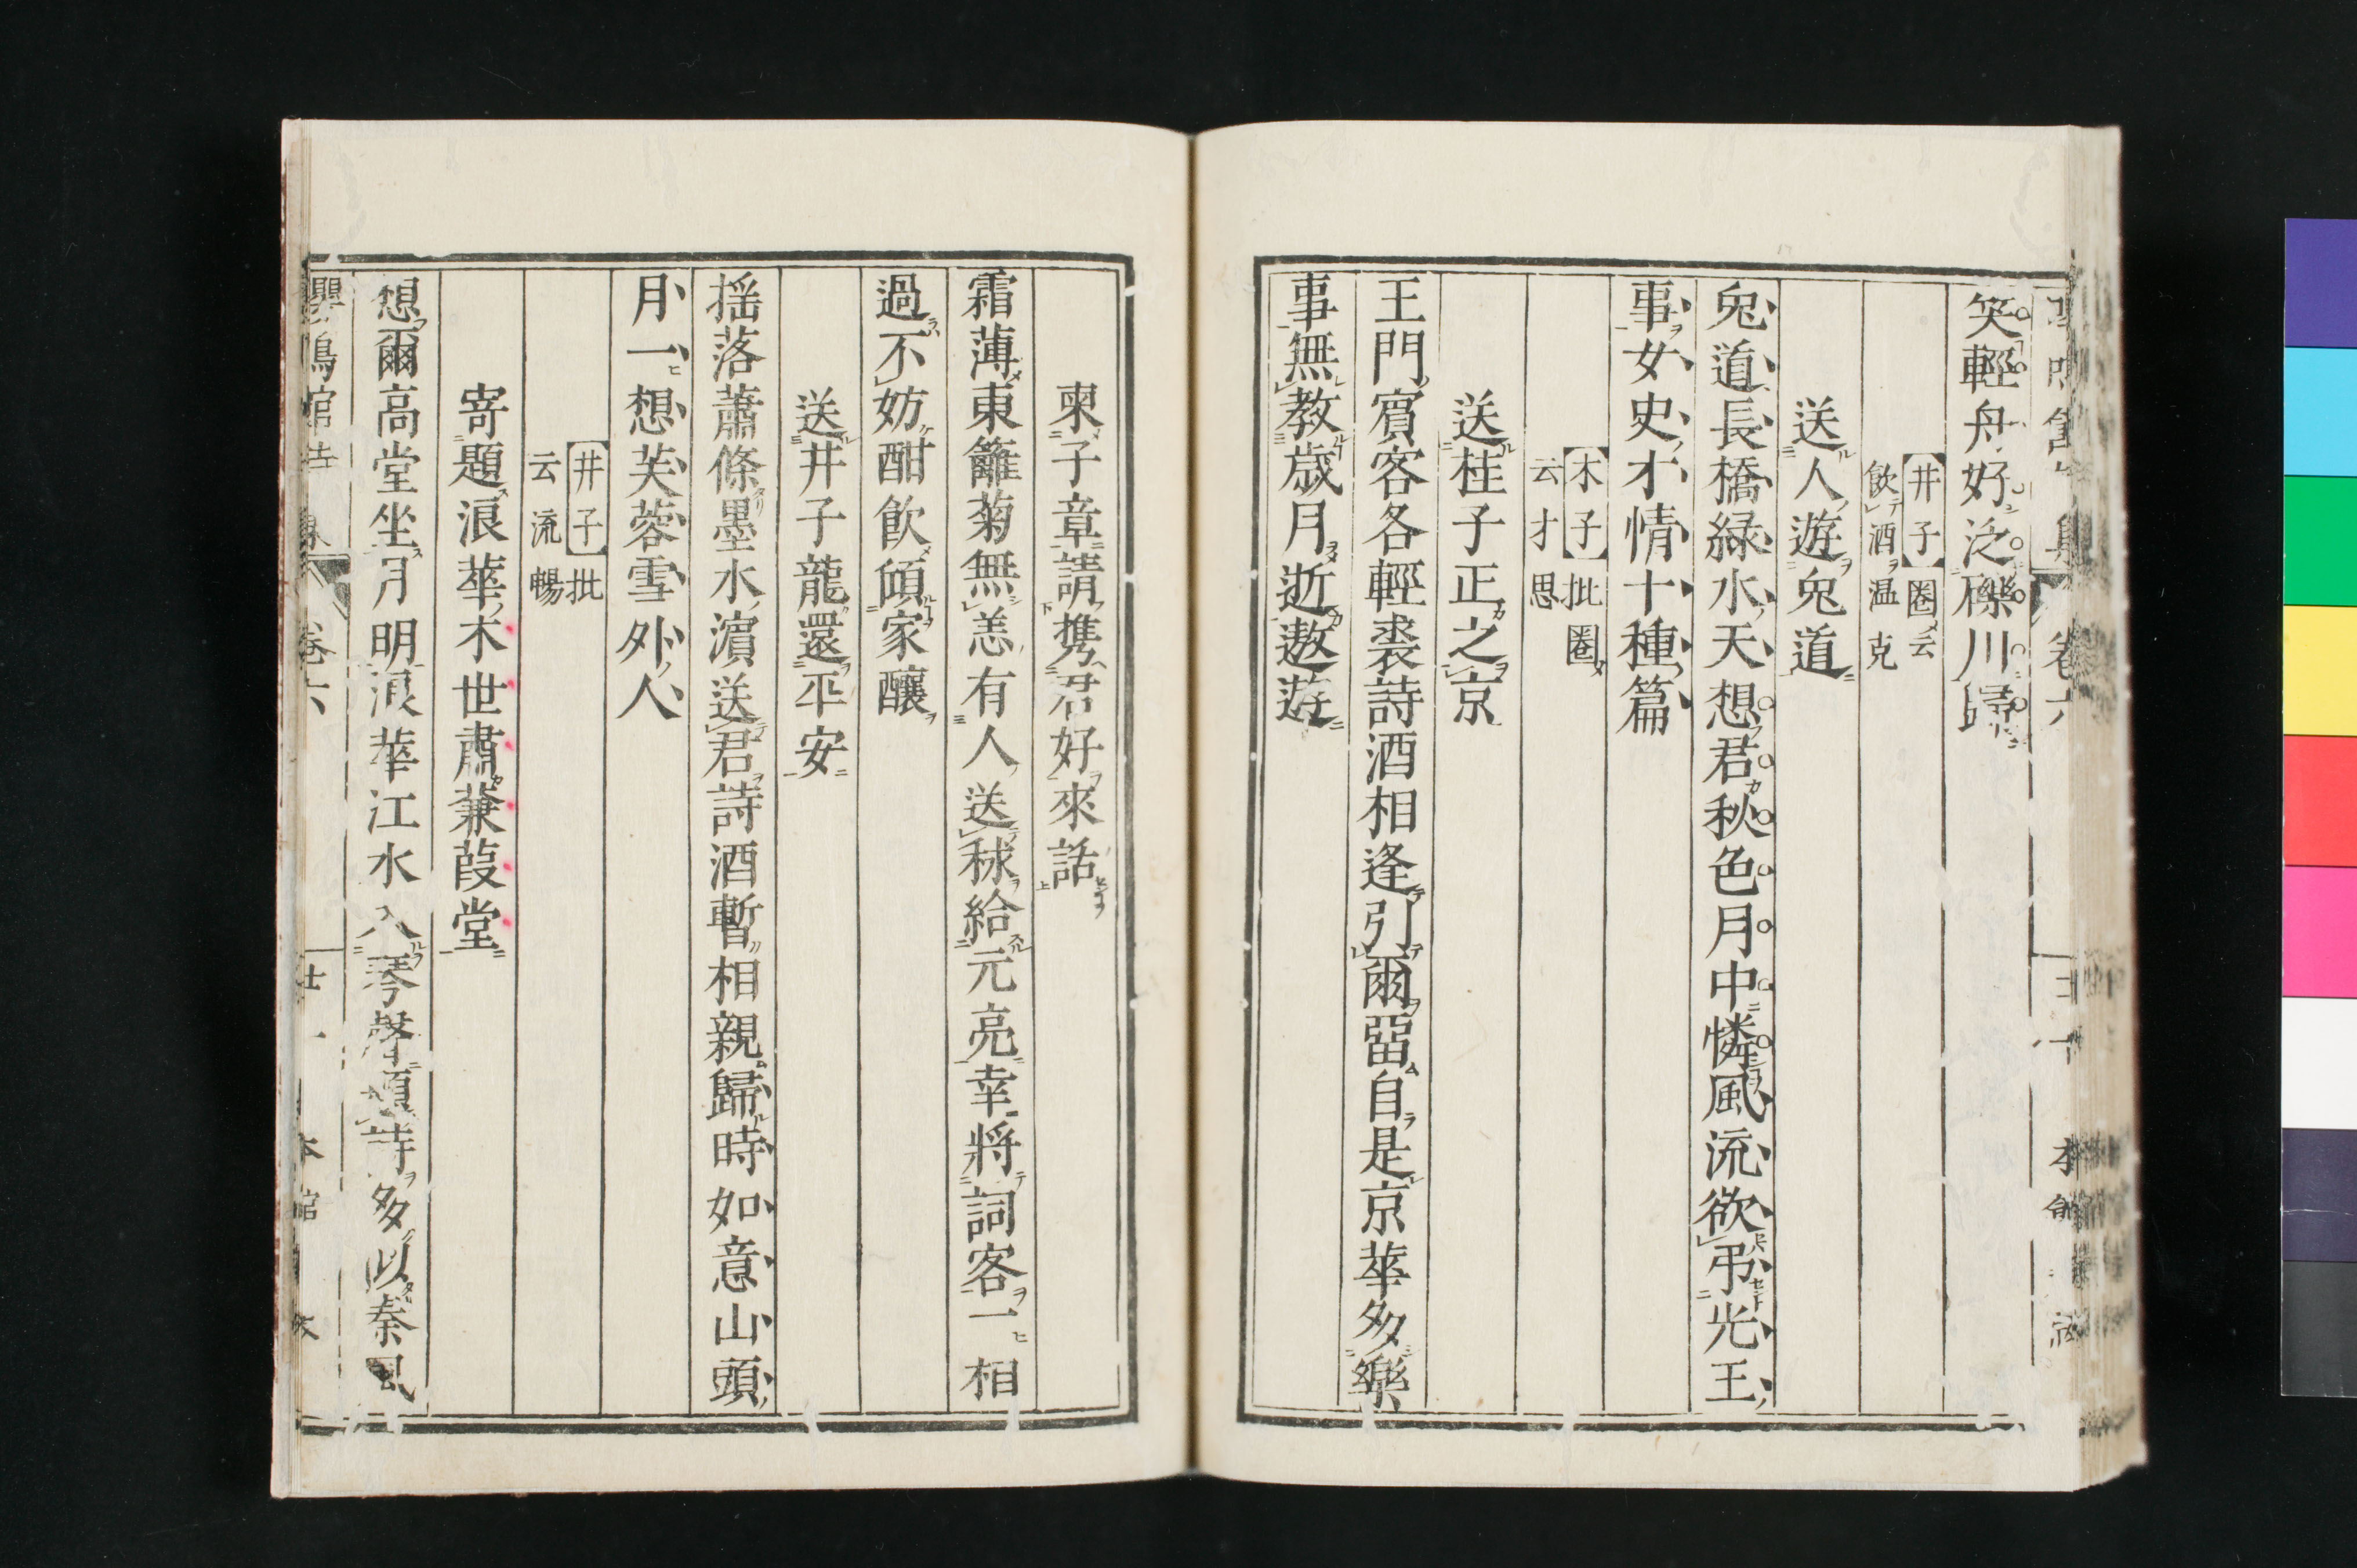 笑輕舟好泛礫川歸
井子圈云
飲酒温克
送人遊兔道
兔道長橋緑水天想君秋色月中憐風流欲弔光王
事女史才情十種篇
木子批圈
云才思
送桂子正之京
王門賓客各輕裘詩酒相逢引爾留自是京華多樂
事無教歳月逝遨遊
柬子章請携君好來話
霜薄東籬菊無恙有人送秫給元亮幸將詞客一相
過不妨酣飲傾家釀
送井子龍還平安
揺落蕭條墨水濵送君詩酒暫相親歸時如意山頭
月一想芙蓉雪外人
井子批
云流暢
寄題浪華木世肅蒹葭堂
想爾高堂坐月明浪華江水入琴聲頃詩多以秦風
卷六